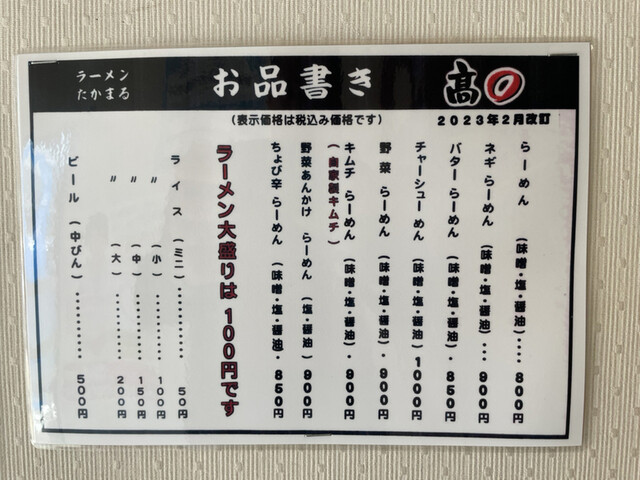 ラーメン
たかまる
お品書き
髙〇
(表示価格は税込み価格です)
2023年2月改訂
らーめん (味噌・塩・醤油)････800円
ネギ らーめん (味噌・塩・醤油)･･･900円
バター らーめん (味噌・塩・醤油)・850円
チャーシューめん (味噌・塩・醤油)1000円
野菜 らーめん (味噌・塩・醤油)・900円
キムチ らーめん (味噌・塩・醤油)・900円
(自家製キムチ)
野菜あんかけ らーめん (塩・醤油)900円
ちょび辛 らーめん (味噌・塩・醤油)・850円
ラーメン大盛りは100円です
ライス (ミニ)･･････････50円
〃 (小)･･････････100円
〃 (中)･･････････150円
〃 (大)･･････････200円
ビール (中びん)･･････････500円